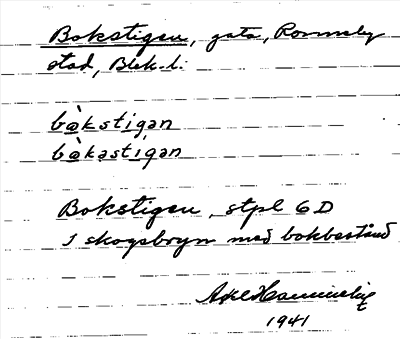 Bokstigen, gata, Ronneby
stad, Blek. l.
bø̀kstigən
bø̀kastigən
Bokstigen, stpl 6D
I skogsbryn med bokbestånd
1941